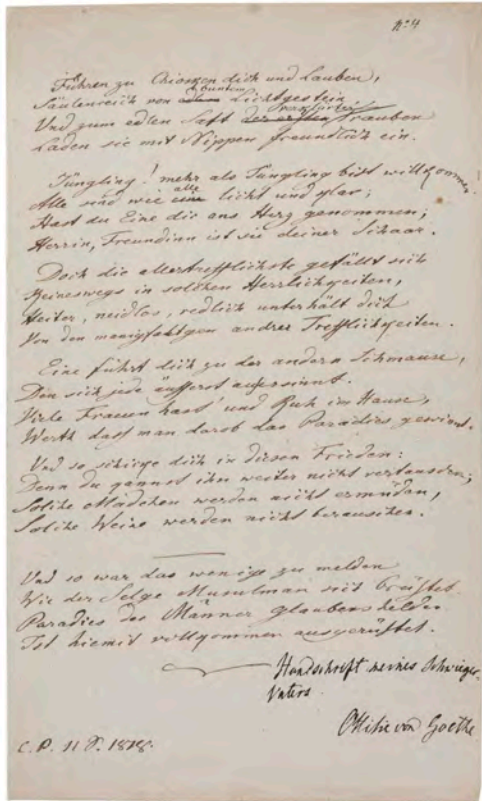 nº 4
Führen zu Kiosken dich und Lauben,
buntem
Säulenreich von edlem Lichtgestein
verklärter
Und zum edlen Saft der ersten Trauben
Laden sie mit Nippen freundlich ein.
Jüngling! mehr als Jüngling bist willkommen
alle
Alle sind wie eine licht und klar;
Hast du Eine dir ans Herz genommen;
Herrin, Freundinn ist sie deiner Schaar.
Doch die allertrefflichste gefällt sich
Keineswegs in solchen Herrlichkeiten,
Heiter, neidlos, redlich unterhält dich
Von den manigfaltgen andrer Trefflichkeiten.
Eine führt dich zu der andern Schmause,
Den sich jede äusserst ausersinnt.
Viele Frauen hast und Ruh im Hause,
Werth dass man darob das Paradies gewinnt.
Und so schicke dich in diesen Frieden:
Denn du kannst ihn weiter nicht vertauschen;
Solche Mädchen werden nicht ermüden,
Solche Weine werden nicht berauschen.
Und so war das wenige zu melden
Wie der Selge Musulman sich brüstet.
Paradies der Männer glaubenshelden
Ist hiemit vollkommen ausgerüstet.
Handschrift meines Schwieger-
Vaters
Ottilie von Goethe
1818.